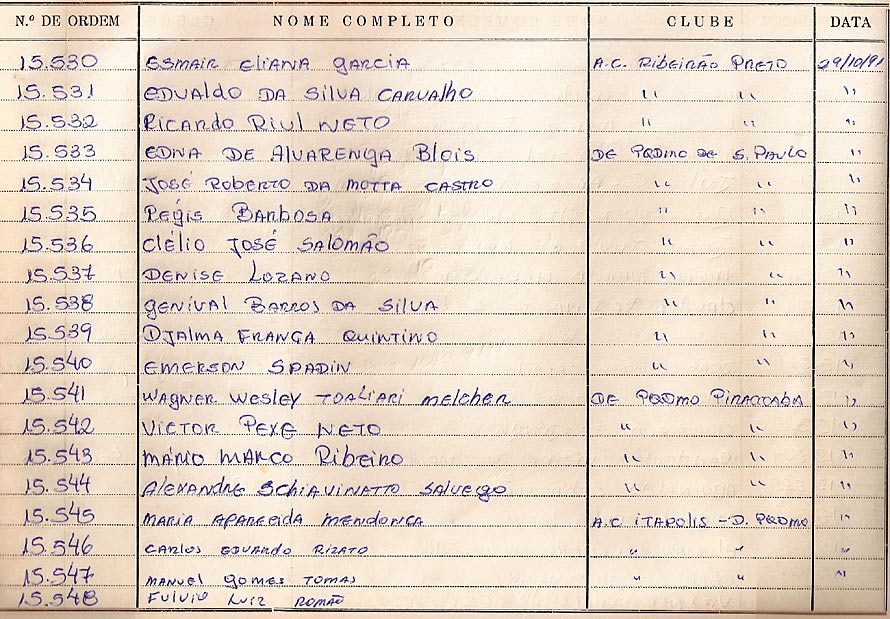 N.º DE ORDEM NOME COMPLETO CLUBE DATA
15.530 ESMAIR ELIANA GARCIA A.C. RIBEIRÃO PRETO 29/10/91
15.531 EDUALDO DA SILVA CARVALHO " " "
15.532 RICARDO RIUL NETO " " "
15.533 EDNA DE ALVARENGA BLOIS DE PQDMO DE S. PAULO "
15.534 JOSÉ ROBERTO DA MOTTA CASTRO " " "
15.535 REGIS BARBOSA " " "
15.536 CLÉLIO JOSÉ SALOMÃO " " "
15.537 DENISE LOZANO " " "
15.538 GENIVAL BARROS DA SILVA " " "
15.539 DJALMA FRANÇA QUINTINO " " "
15.540 EMERSON SPADIN " " "
15.541 WAGNER WESLEY MELCHER DE PQDMO PIRACICABA "
15.542 VICTOR PEXE NETO " " "
15.543 MARIO MARCO RIBEIRO " " "
15.544 ALEXANDRE SCHIAVINATTO SALVEGO " " "
15.545 MARIA APARECIDA MENDONÇA A.C ITAPOLIS - D. PQDMO "
15.546 CARLOS EDUARDO RIZATO " " "
15.547 MANUEL GOMES TOMAS " " "
15.548 FULVIO LUIZ ROMÃO